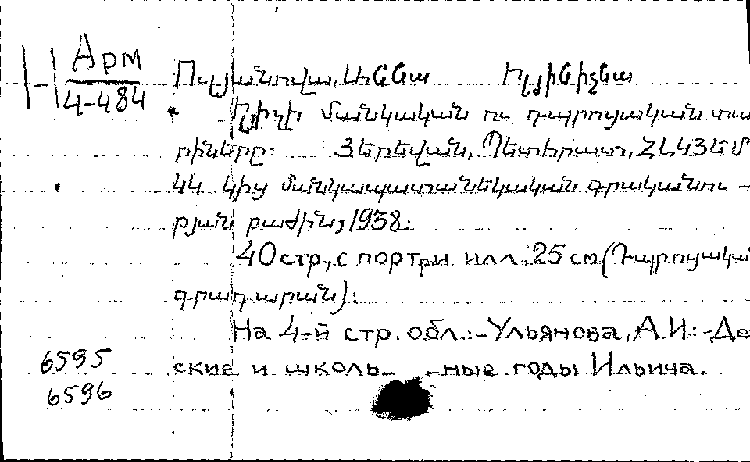 Арм
4-484
Ուլյանովա, Աննա Իլյինիչնա
Իլյիչի մանկական ու դպրոցական տա
րիները: Յերեվան, Պետհրատ, ՀԼԿՅԵՄ
ԿԿ կից մանկապատանեկական գրականու-
թյան բաժին, 1938.
40 стр., с портр. и илл. 25 см (Դպրոցակա
գրադարան):
На 4-й стр. обл.:-Ульянова, А.И.:-Де
ские и школь- -ные годы Ильича.
6595
6596